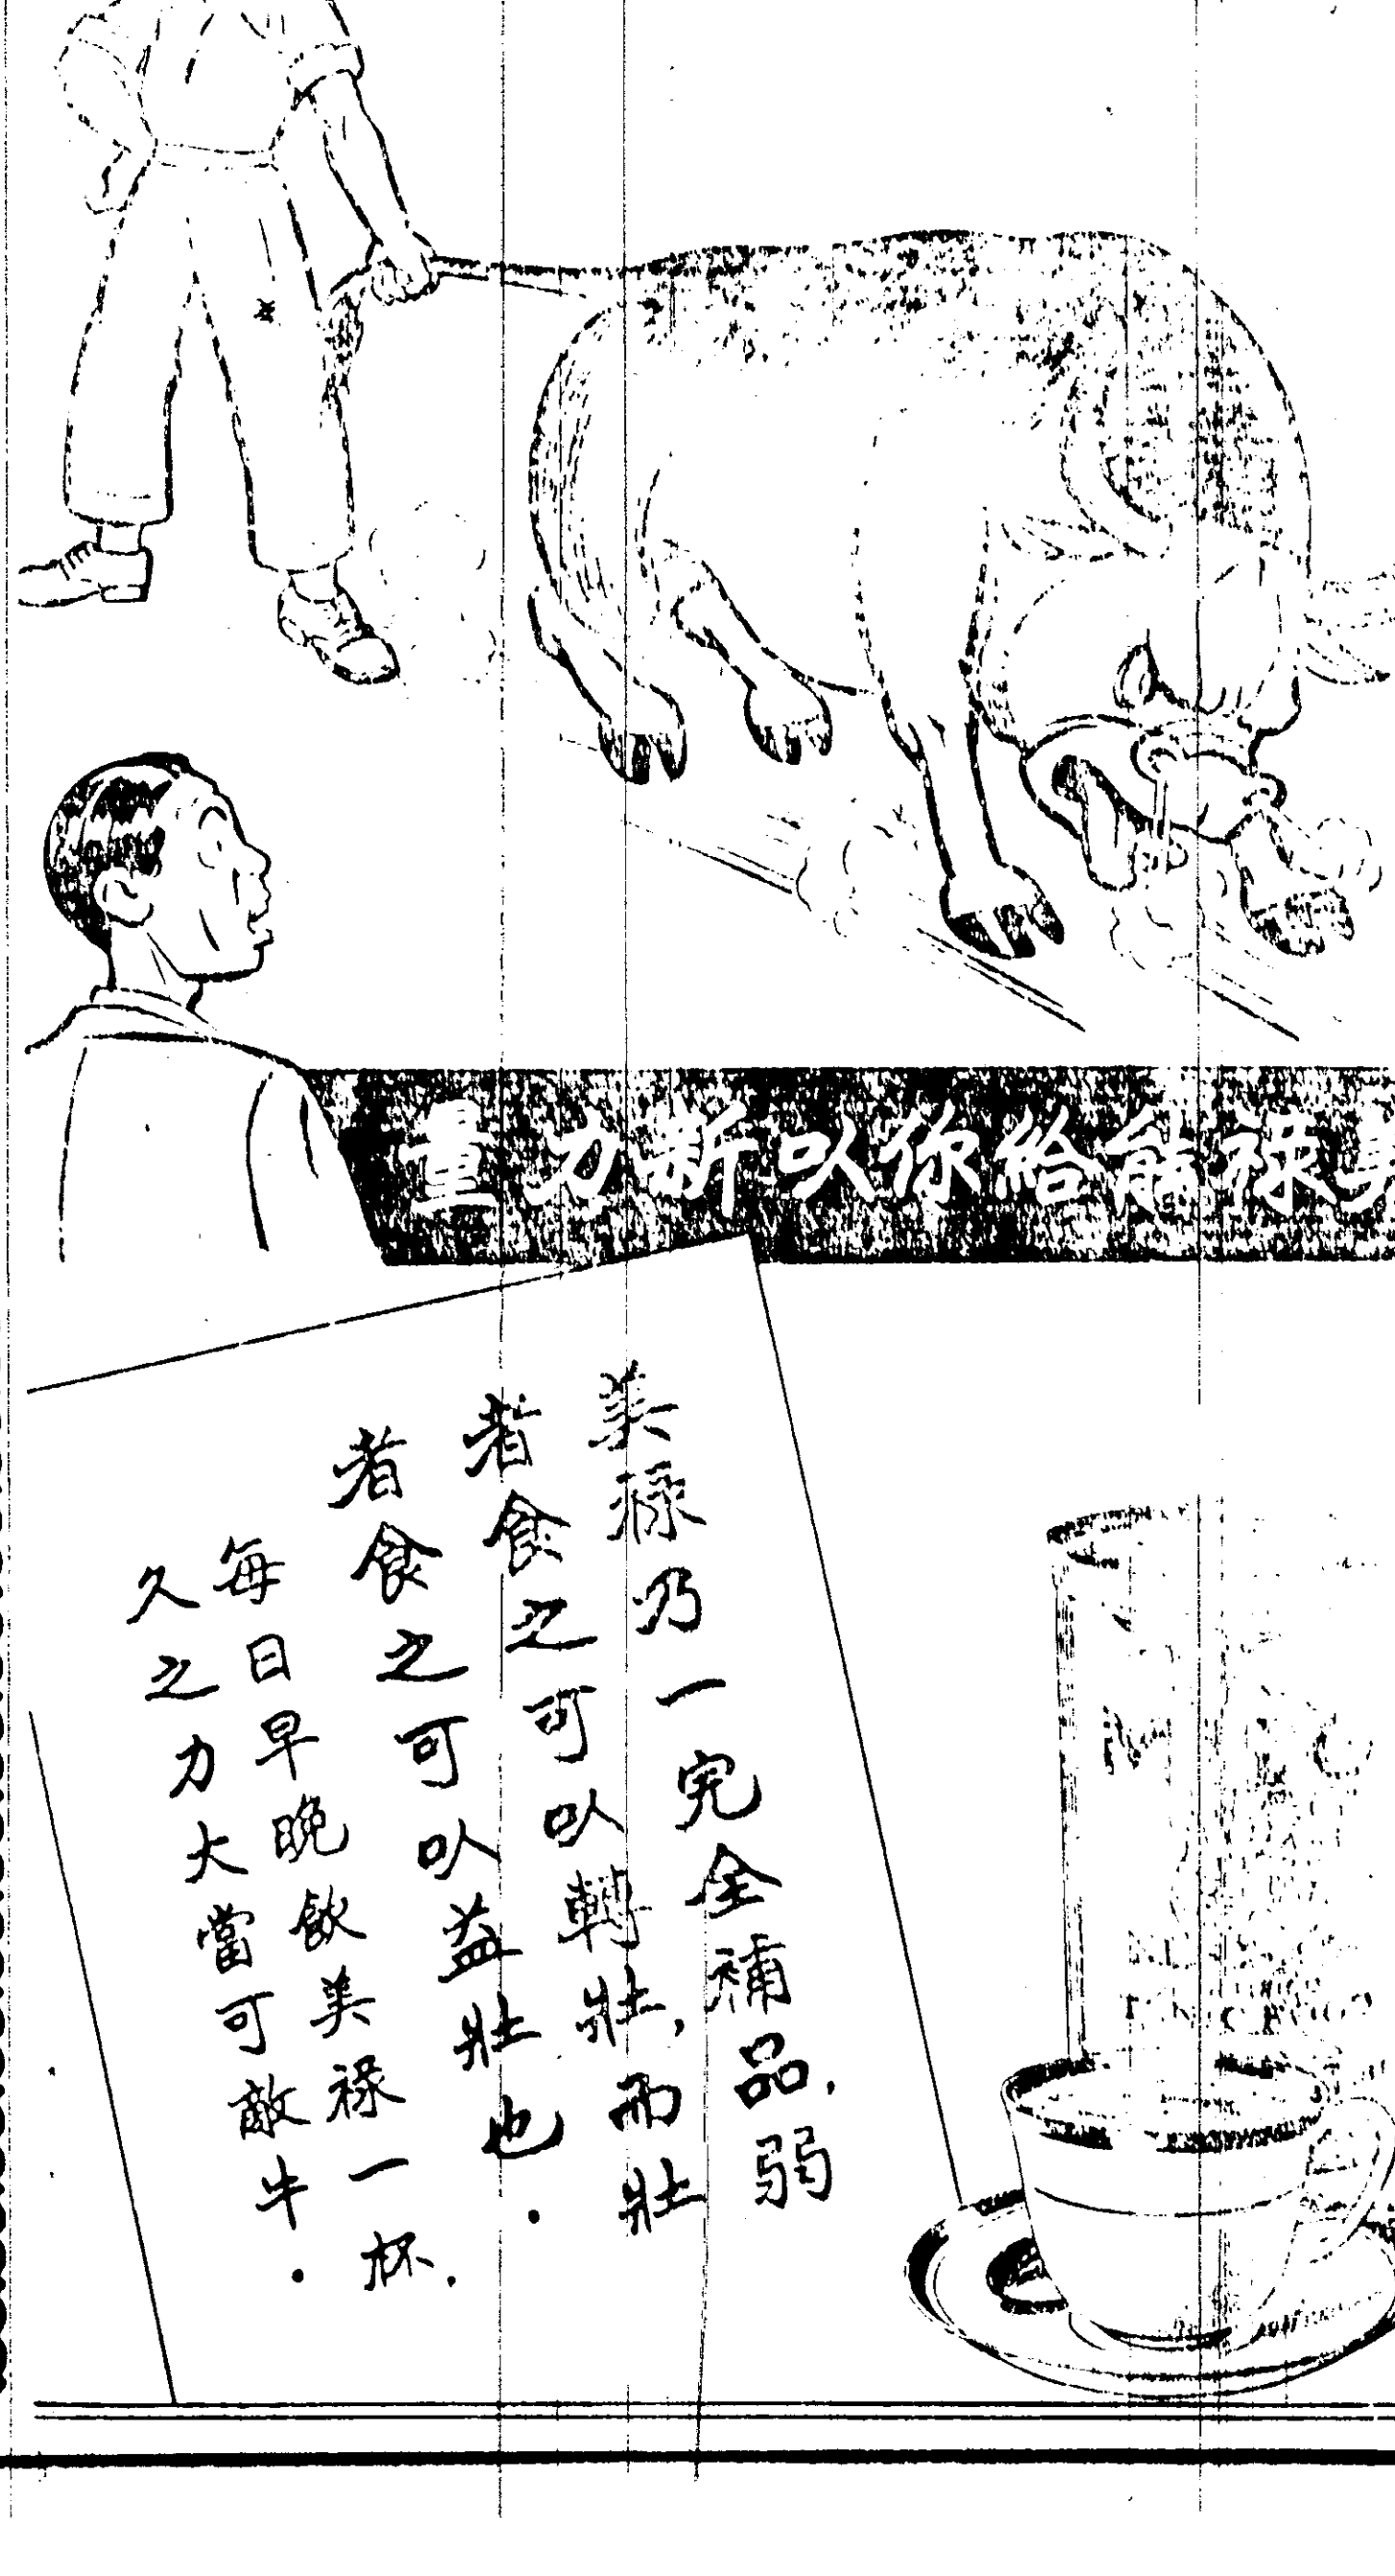 美祿能給你以新力量
美祿乃一完全補品，弱
者食之可以轉壯，而壯
者食之可以益壯也．
每日早晚飲美祿一杯．
久之力大當可敵牛．